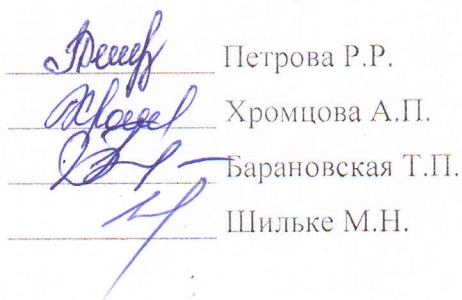 Петрова Р.Р.
Хромцова А.П.
Барановская Т.П.
Шильке М.Н.